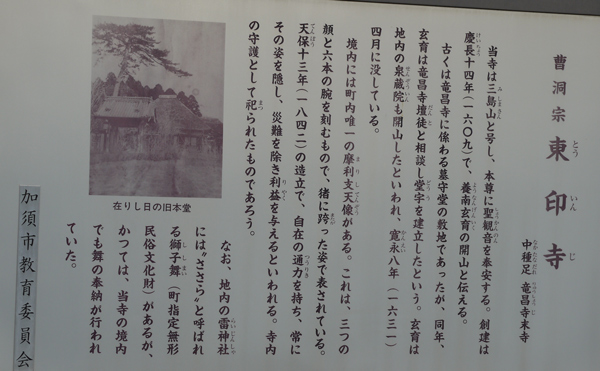 曹洞宗 東印寺
とう いん じ
中種足 竜昌寺末寺
なかたなだれ りゅうしょうじ
当寺は三島山と号し、本尊に聖観音を奉安する。創建は
慶長十四年(一六〇九)で、養南玄育の開山と伝える。
古くは竜昌寺に係わる墓守堂の敷地であったが、同年、
玄育は竜昌寺壇徒と相談し堂宇を建立したという。玄育は
地内の泉蔵院も開山したといわれ、寛永八年(一六三一)
四月に没している。
境内には町内唯一の摩利支天像がある。これは、三つの
顔と六本の腕を刻むもので、猪に跨った姿で表されている。
天保十三年(一八四二)の造立で、自在の通力を持ち、常に
その姿を隠し、災難を除き利益を与えるといわれる。寺内
の守護として祀られたものであろう。
なお、地内の雷神社
には“ささら”と呼ばれ
る獅子舞(町指定無形
民俗文化財)があるが、
かつては、当寺の境内
でも舞の奉納が行われ
ていた。
在りし日の旧本堂
加須市教育委員会